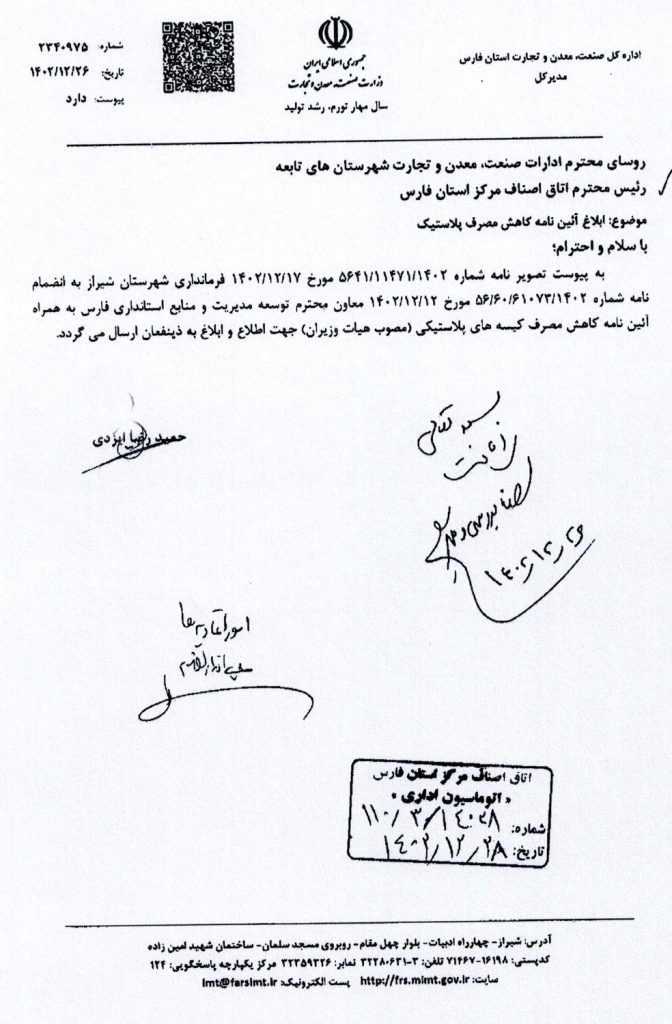 اداره کل صنعت، معدن و تجارت استان فارس
مدیرکل
جمهوری اسلامی ایران
وزارت صنعت، معدن و تجارت
سال مهار تورم، رشد تولید
شماره: ۲۳۴۰۹۷۵
تاریخ: ۱۴۰۲/۱۲/۲۶
پیوست: دارد
روسای محترم ادارات صنعت، معدن و تجارت شهرستان های تابعه
رئیس محترم اتاق اصناف مرکز استان فارس
موضوع: ابلاغ آئین نامه کاهش مصرف پلاستیک
با سلام و احترام؛
به پیوست تصویر نامه شماره ۵۶۴۱/۱۱۴۷۱/۱۴۰۲ مورخ ۱۴۰۲/۱۲/۱۷ فرمانداری شهرستان شیراز به انضمام
نامه شماره ۵۶/۶۰/۶۱۰۷۳/۱۴۰۲ مورخ ۱۴۰۲/۱۲/۱۲ معاون محترم توسعه مدیریت و منابع استانداری فارس به همراه
آئین نامه کاهش مصرف کیسه های پلاستیکی (مصوب هیات وزیران) جهت اطلاع و ابلاغ به ذینفعان ارسال می گردد.
حمید رضا ایزدی
بسمه تعالی
۱۴۰۲/۱۲/۲۶
امور اتحادیه ها
اتاق اصناف مرکز استان فارس
« اتوماسیون اداری »
شماره:
تاریخ: ۱۴۰۲/۱۲/۲۸
آدرس: شیراز- چهارراه ادبیات- بلوار چهل مقام- روبروی مسجد سلمان- ساختمان شهید امین زاده
کدپستی: ۱۶۱۹۸-۷۱۴۶۷ تلفن: ۳-۳۲۲۸۰۶۳۱ نمابر: ۳۲۳۵۹۳۲۶ مرکز یکپارچه پاسخگویی: ۱۲۴
سایت: http://frs.mimt.gov.ir پست الکترونیک: imt@farsimt.ir